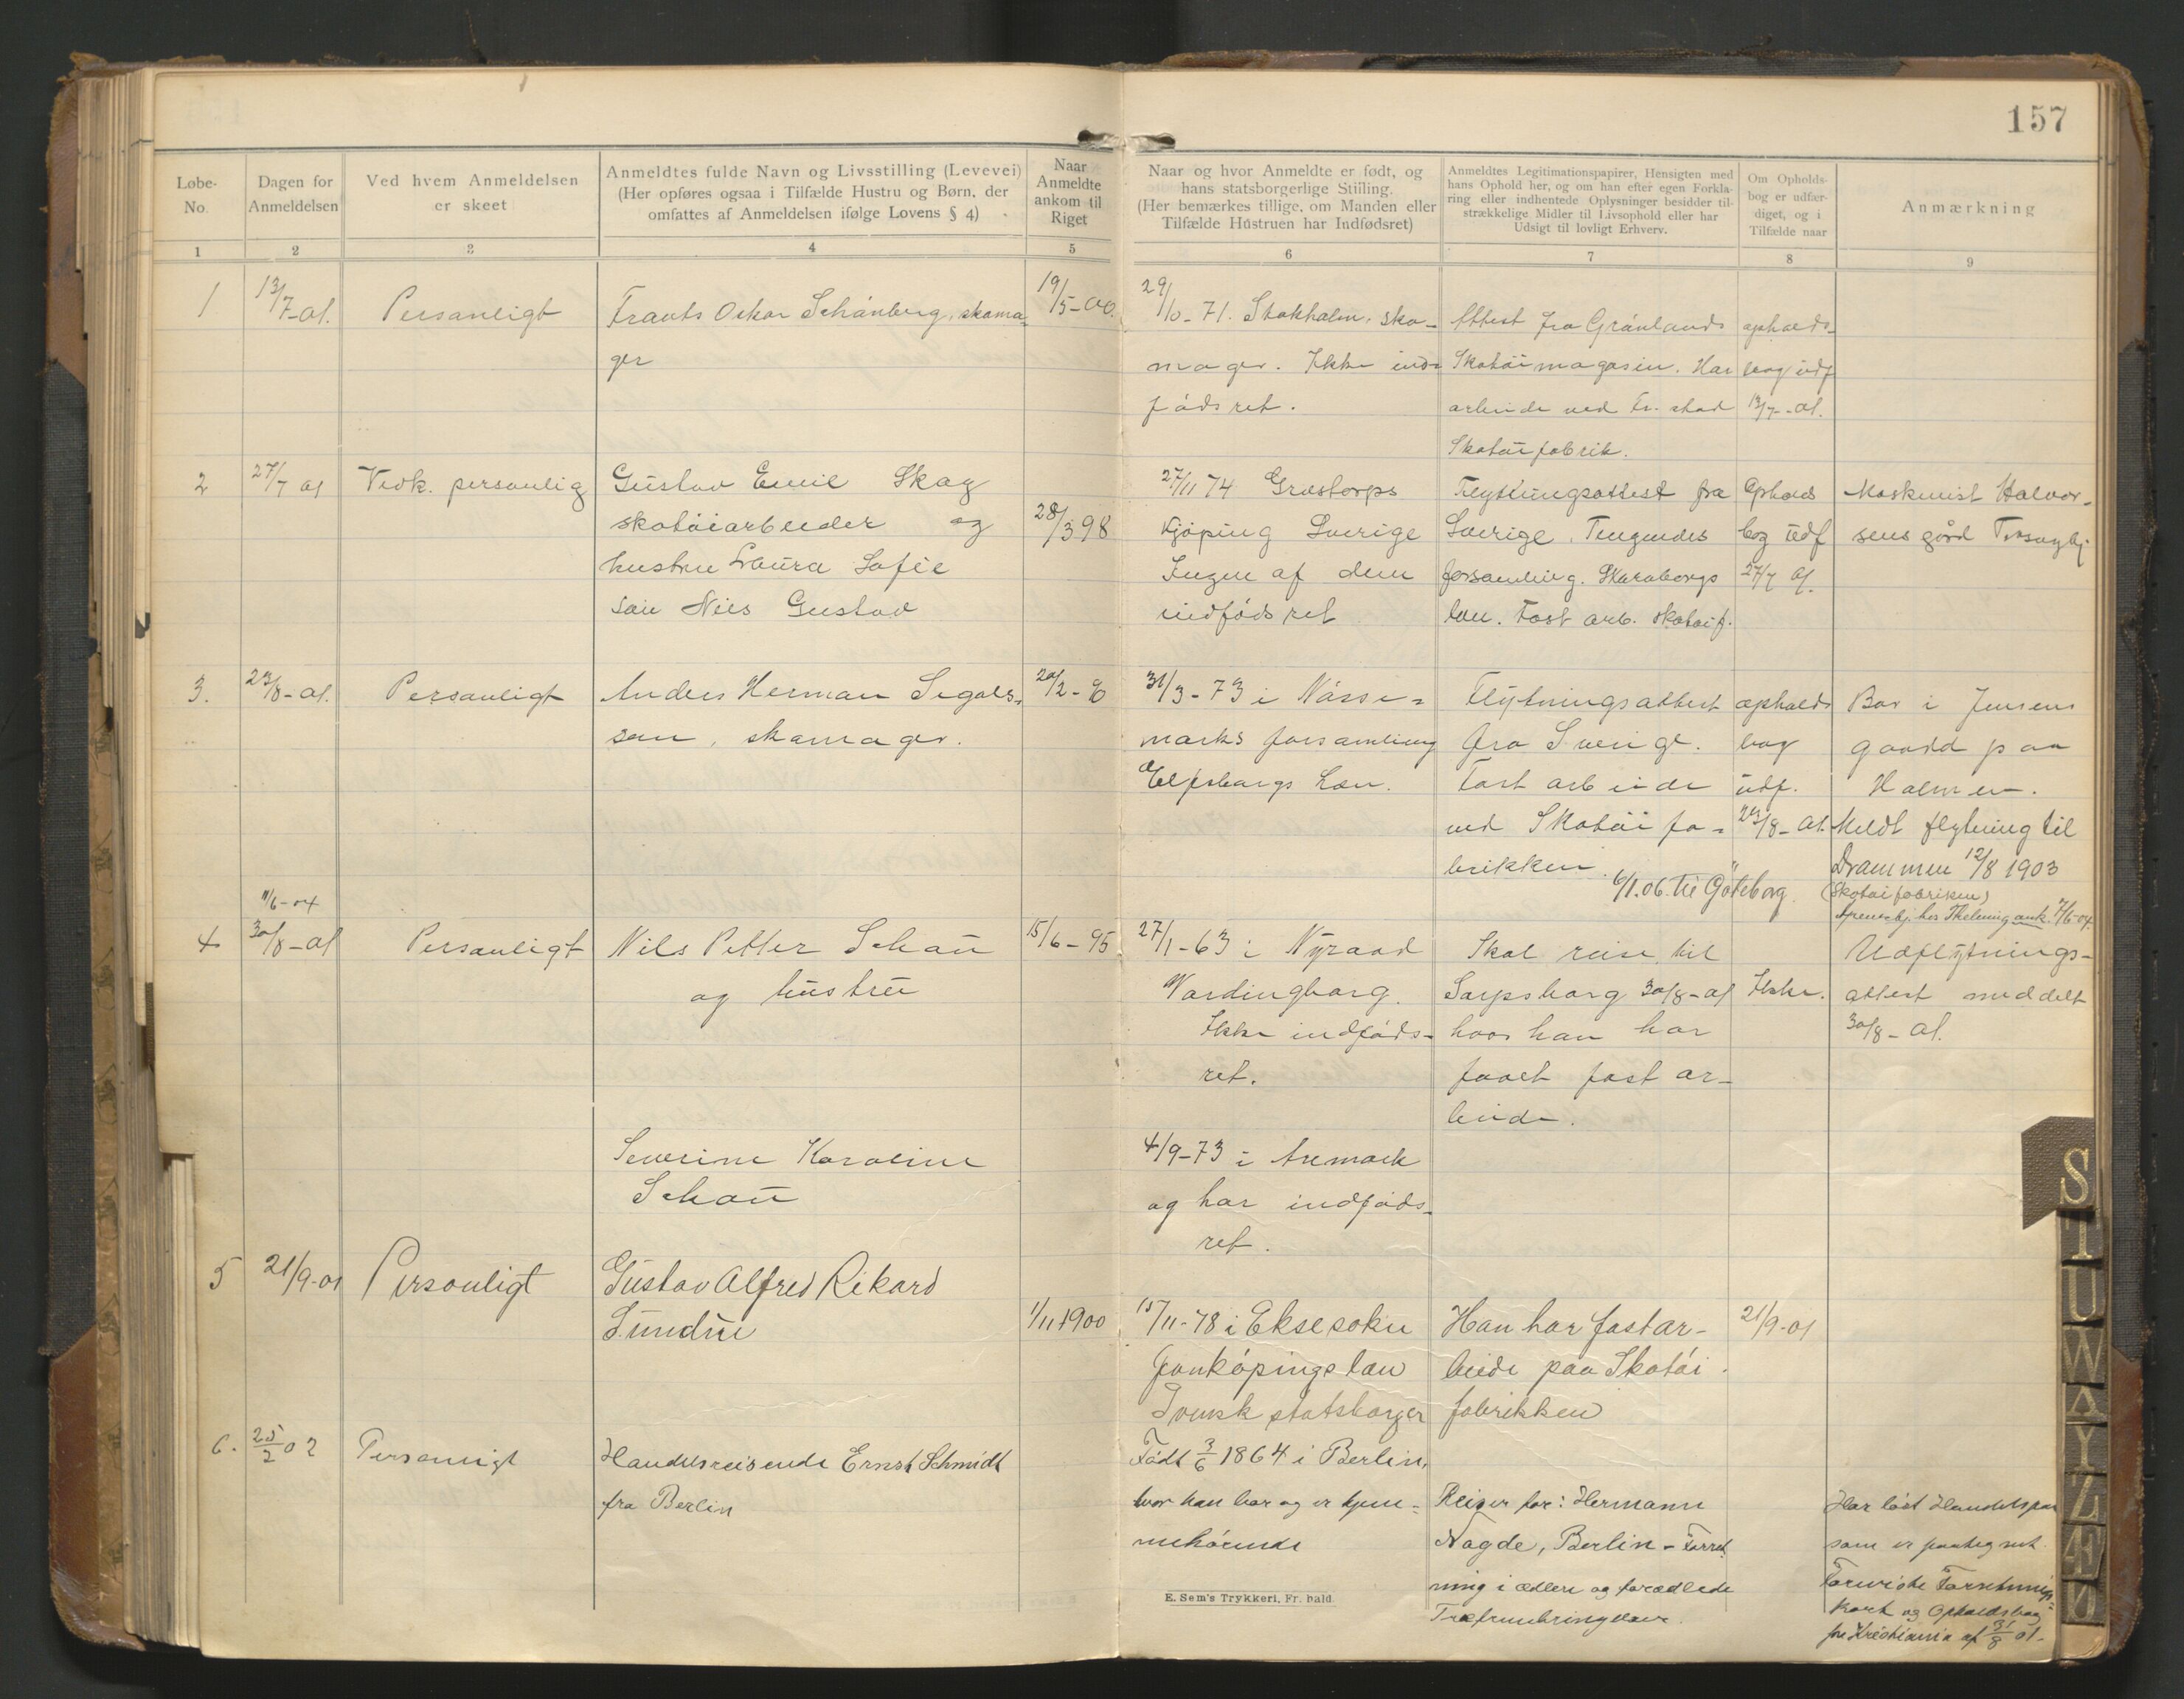 157
Løbe-
No.
Dagen for
Anmeldelsen
Ved hvem Anmeldelsen
er skeet
Anmeldtes fulde Navn og Livsstilling (Levevei)
(Her opføres ogsaa i Tilfælde Hustru og Børn, der
omfattes af Anmeldelsen ifølge Lovens § 4)
Naar
Anmeldte
ankom til
Riget
Naar og hvor Anmeldte er født, og
hans statsborgerlige Stilling.
(Her bemærkes tillige, om Manden eller
Tilfælde Hustruen har Indfødsret)
Anmeldtes Legitimationspapirer, Hensigten med
hans Ophold her, og om han efter egen Forkla-
ring eller indhentede Oplysninger besidder til-
strækkelige Midler til Livsophold eller har
Udsigt til lovligt Erhverv.
Om Opholds-
bog er udfær-
diget, og i
Tilfælde naar
Anmærkning
1 2 3 4 5 6 7 8 9
1
13/7-01.
Personligt
Frants Oskar Schönberg, skoma-
ger
19/5-00.
29/10-71. Stokholm, sko-
mager. Ikke ind-
födsret.
Attest fra Grönlands
Skotöimagasin. Har
arbeide ved Fr. stad
Skotöifabrik.
opholds-
bog udf
13/7-01.
2
27/7 01
Vedk. personlig
Gustav Emil Skog
skotöiarbeider og
hustru Laura Sofie
sön Nils Gustav
28/3 98
27/11 74 Grostorps
Kjöping Sverige
Ingen af dem
indfödsret
Flytningsattest fra
Sverige. Tengendes
forsamling. Skaraborgs
län. Fast arb. skotöif.
Opholds
bog udf
27/7 01.
Maskinist Halvor-
sens gård
3.
23/8-01.
Personligt
Anders Herman Segols-
son, skomager.
20/2-96
31/3-73 i Nösse-
marks forsamling
Elfsborgs Län.
Flytningsattest
fra Sverige.
Fast arbeide
ved Skotöifa-
brikken.
opholds
bog
udf.
23/8-01.
Bor i Jensens
gaard paa
Holmen.
Meldt flytning til
Drammen 12/8 1903
(Skotöifabriken)
6/1.06 til Göteborg.
11/6-04
4
30/8-01
Personligt
Nils Petter Schou
og hustru
15/6-95
27/1-63 i Nyraad
Vordingborg.
Ikke indföds-
ret.
Skal reise til
Sarpsborg 30/8-01
hvor han har
faaet fast ar-
beide.
Ikke.
Udflytnings-
attest meddelt
30/8-01.
Severine Karoline
Schou
4/9-73 i Aremark
og har indföds-
ret.
5
21/9-01
Personligt
Gustav Alfred Rikard
Sundin
1/11 1900
15/11-78 i Eksesokn
Jonköpings län
Svensk statsborger
Han har fast ar-
beide paa Skotöi
fabrikken
21/9-01
6.
25/2 02
Personligt
Handelsreisende Ernst Schmidt
fra Berlin
Födt 3/6 1864 i Berlin,
hvor han bor og er hjem-
mehörende
Reiser for: Hermann
Nagde, Berlin - Forret
ning i ædlere og forædlede
Har löst Handelspas
som er paategnet.
Foreviste Forretnings-
kort og Opholdsbog
fra Kristiania af 31/8 01-
E. Sem's Trykkeri, Fr. hald.
S
T
U
W
A
Y
Z
Æ
Ø